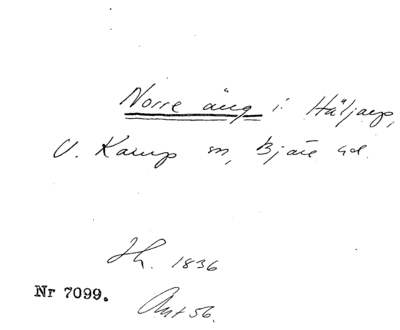 Norre äng i Häljarp,
V. Karup sn, Bjäre hd.
Ih. 1836
Nr 7099.
Ant 56.